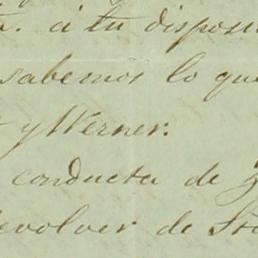 a. á tu disposi
sabemos lo que
y Werner:
conducta de
devolver de